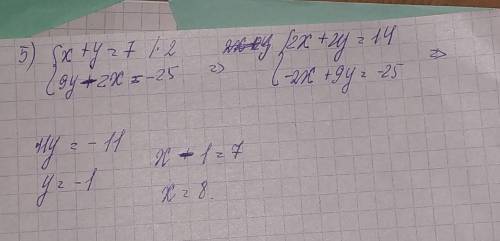 5) { x + y = 7 | · 2
{ 9y - 2x = -25 ⇒
{ 2x + 2y = 14
{ -2x + 9y = -25 ⇒
11y = -11
y = -1
x - 1 = 7
x = 8.